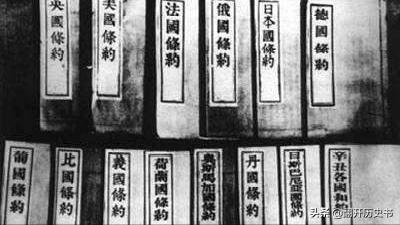 英國條約
美國條約
法國條約
俄國條約
日本國條約
德國條約
葡國條約
比國條約
義國條約
荷蘭國條約
奧斯馬加國條約
丹國條約
日斯巴尼亞國條約
辛丑各國和約
头条 @翻开历史书